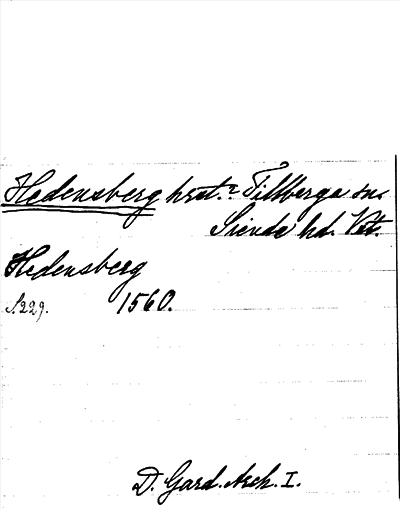 Hedensberg hrst. Tillberga sn.
Siende hd. Vst.
Hedensberg
S. 229. 1560.
D. Gard. Arch. I.